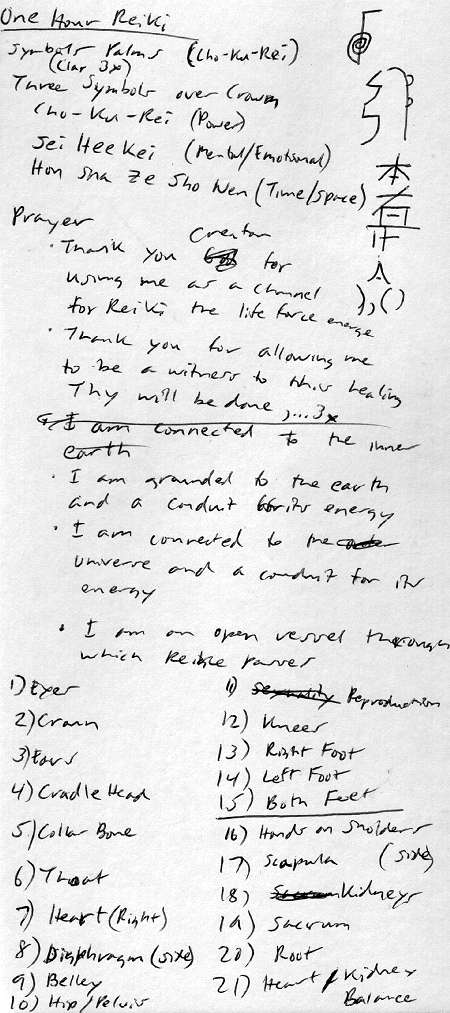 One Hour Reiki
Symbols Palms (Cho-Ku-Rei)
(Clap 3x)
Three Symbols over Crown
Cho-Ku-Rei (Power)
Sei HeeKei (Mental/Emotional)
Hon Sha Ze Sho Nen (Time/Space)
Prayer
· Thank you Creator for
using me as a channel
for Reiki the life force energe
· Thank you for allowing me
to be a witness to this healing
Thy will be done,...3x
I am connected to the inner
earth
· I am grounded to the earth
and a conduit its energy
· I am connected to the
universe and a conduit for its
energy
· I am an open vessel through
which Reike passes
1) Eyes
2) Crown
3) Ears
4) Cradle Head
5) Collar Bone
6) Throat
7) Heart (Right)
8) Diaphragm (side)
9) Belley
10) Hip/Pelvis
11) Sexuality Reproduction
12) Knees
13) Right Foot
14) Left Foot
15) Both Feet
16) Hands on Sholders
17) Scapula (side)
18) Sacrum Kidneys
19) Sacrum
20) Root
21) Heart / Kidney
Balance